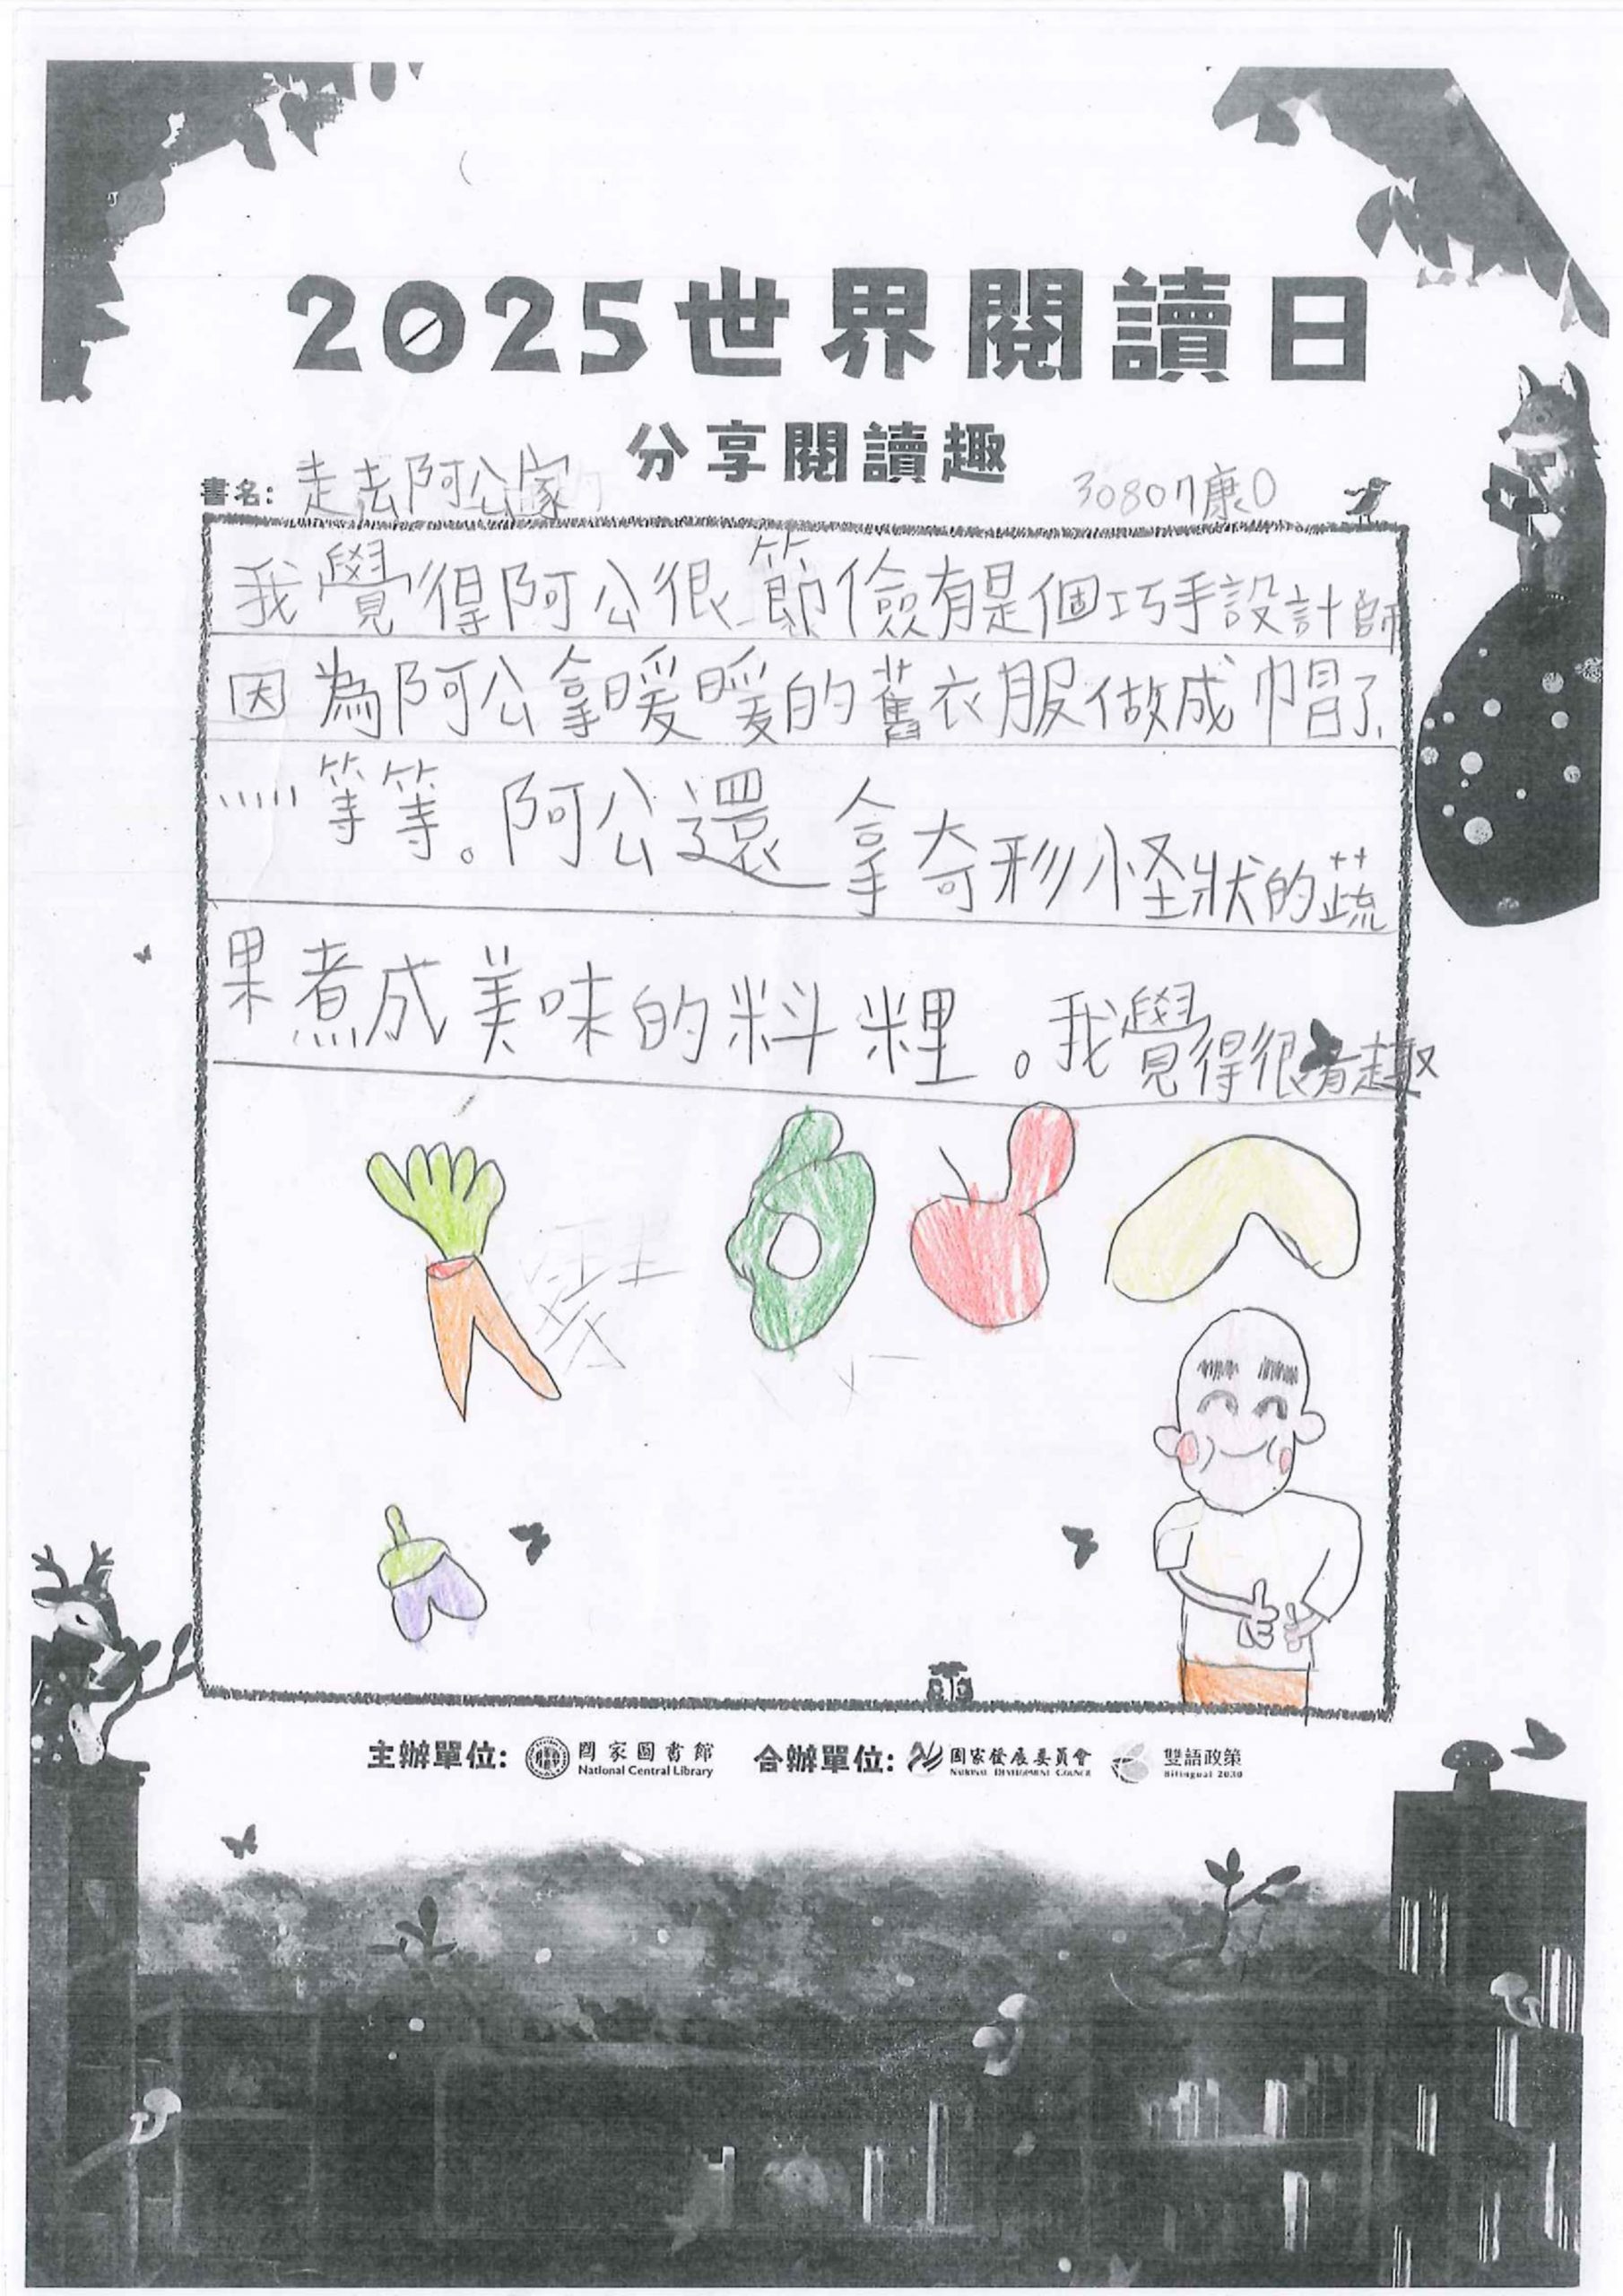 2025世界閱讀日
分享閱讀趣
書名: 走去阿公家
30807康O
我覺得阿公很節儉有是個巧手設計師
因為阿公拿暖暖的舊衣服做成帽了、
……等等。阿公還拿奇形怪狀的蔬
果煮成美味的料理。我覺得很有趣
主辦單位: 國家圖書館 National Central Library 合辦單位: 國家發展委員會 National Development Council 雙語政策 Bilingual 2030